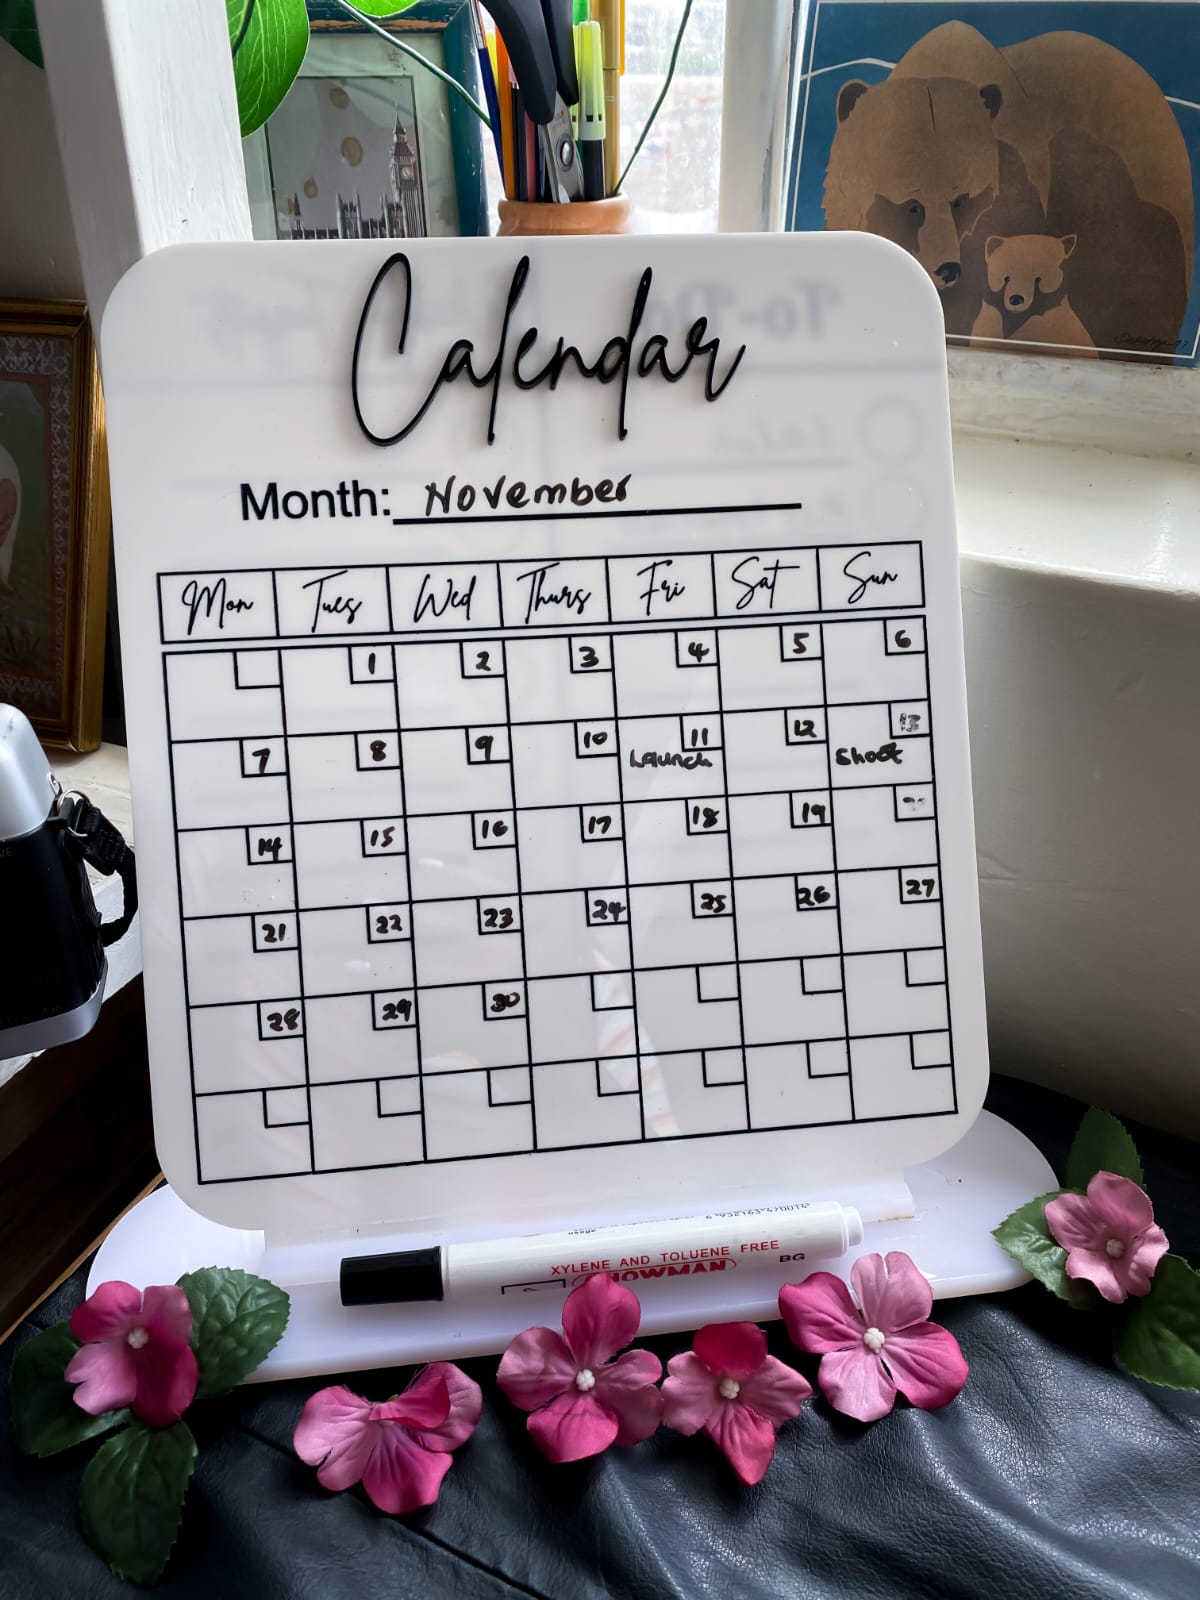 Calendar
Month: November
Mon Tues Wed Thurs Fri Sat Sun
1 2 3 4 5 6
7 8 9 10 11 12 13
Launch Shoot
14 15 16 17 18 19
21 22 23 24 25 26 27
28 29 30
6 932163 470014
usage
XYLENE AND TOLUENE FREE
SNOWMAN BG